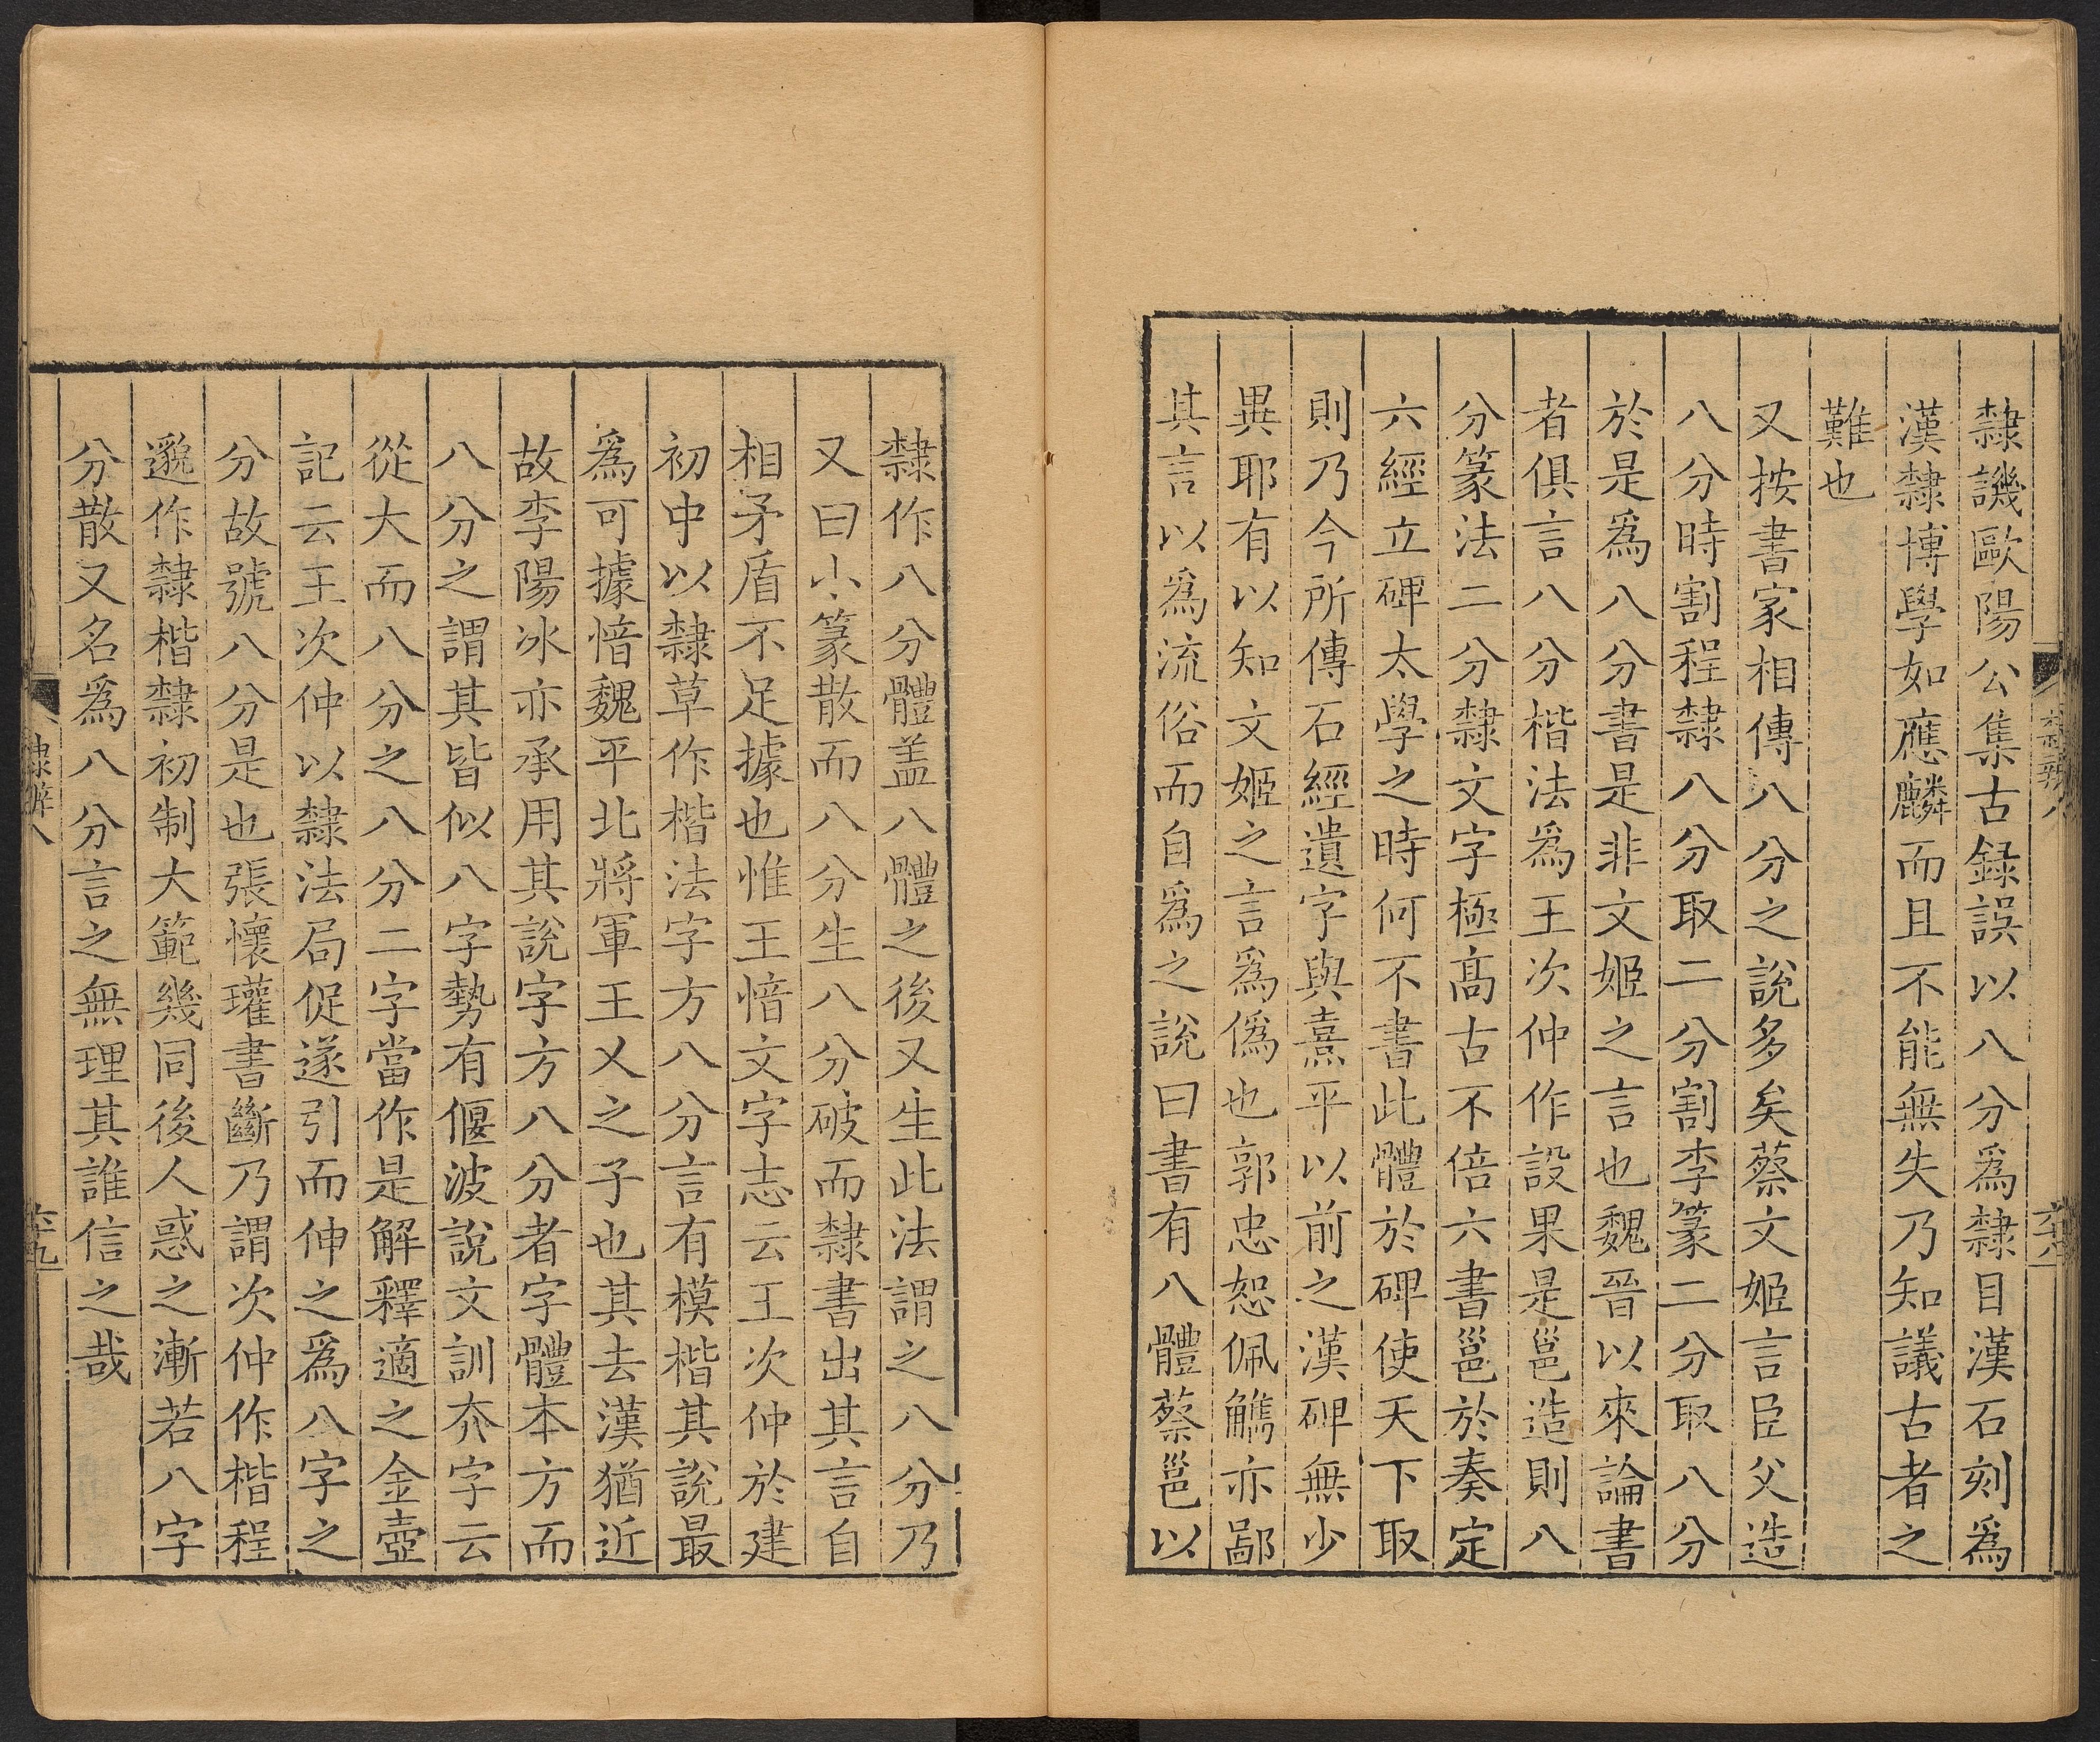 隸譏歐陽公集古録誤以八分爲隸目漢石刻爲
漢隸博學如應麟而且不能無失乃知議古者之
難也
又按書家相傳八分之說多矣蔡文姬言臣父造
八分時割程隸八分取二分割李篆二分取八分
於是爲八分書是非文姬之言也魏晉以來論書
者俱言八分楷法爲王次仲作設果是邕造則八
分篆法二分隸文字極髙古不倍六書邕於奏定
六經立碑太學之時何不書此體於碑使天下取
則乃今所傳石經遺字與熹平以前之漢碑無少
異耶有以知文姬之言爲僞也郭忠恕佩觿亦鄙
其言以爲流俗而自爲之說曰書有八體蔡邕以
隸辨八
六十八
隸作八分體盖八體之後又生此法謂之八分乃
又曰小篆散而八分生八分破而隸書出其言自
相矛盾不足據也惟王愔文字志云王次仲於建
初中以隸草作楷法字方八分言有模楷其說最
爲可據愔魏平北將軍王乂之子也其去漢猶近
故李陽冰亦承用其說字方八分者字體本方而
八分之謂其皆似八字勢有偃波說文訓夰字云
從大而八分之八分二字當作是解釋適之金壺
記云王次仲以隸法局促遂引而伸之爲八字之
分故號八分是也張懷瓘書斷乃謂次仲作楷程
邈作隸楷隸初制大範幾同後人惑之漸若八字
分散又名爲八分言之無理其誰信之哉
隸辨八
六十九